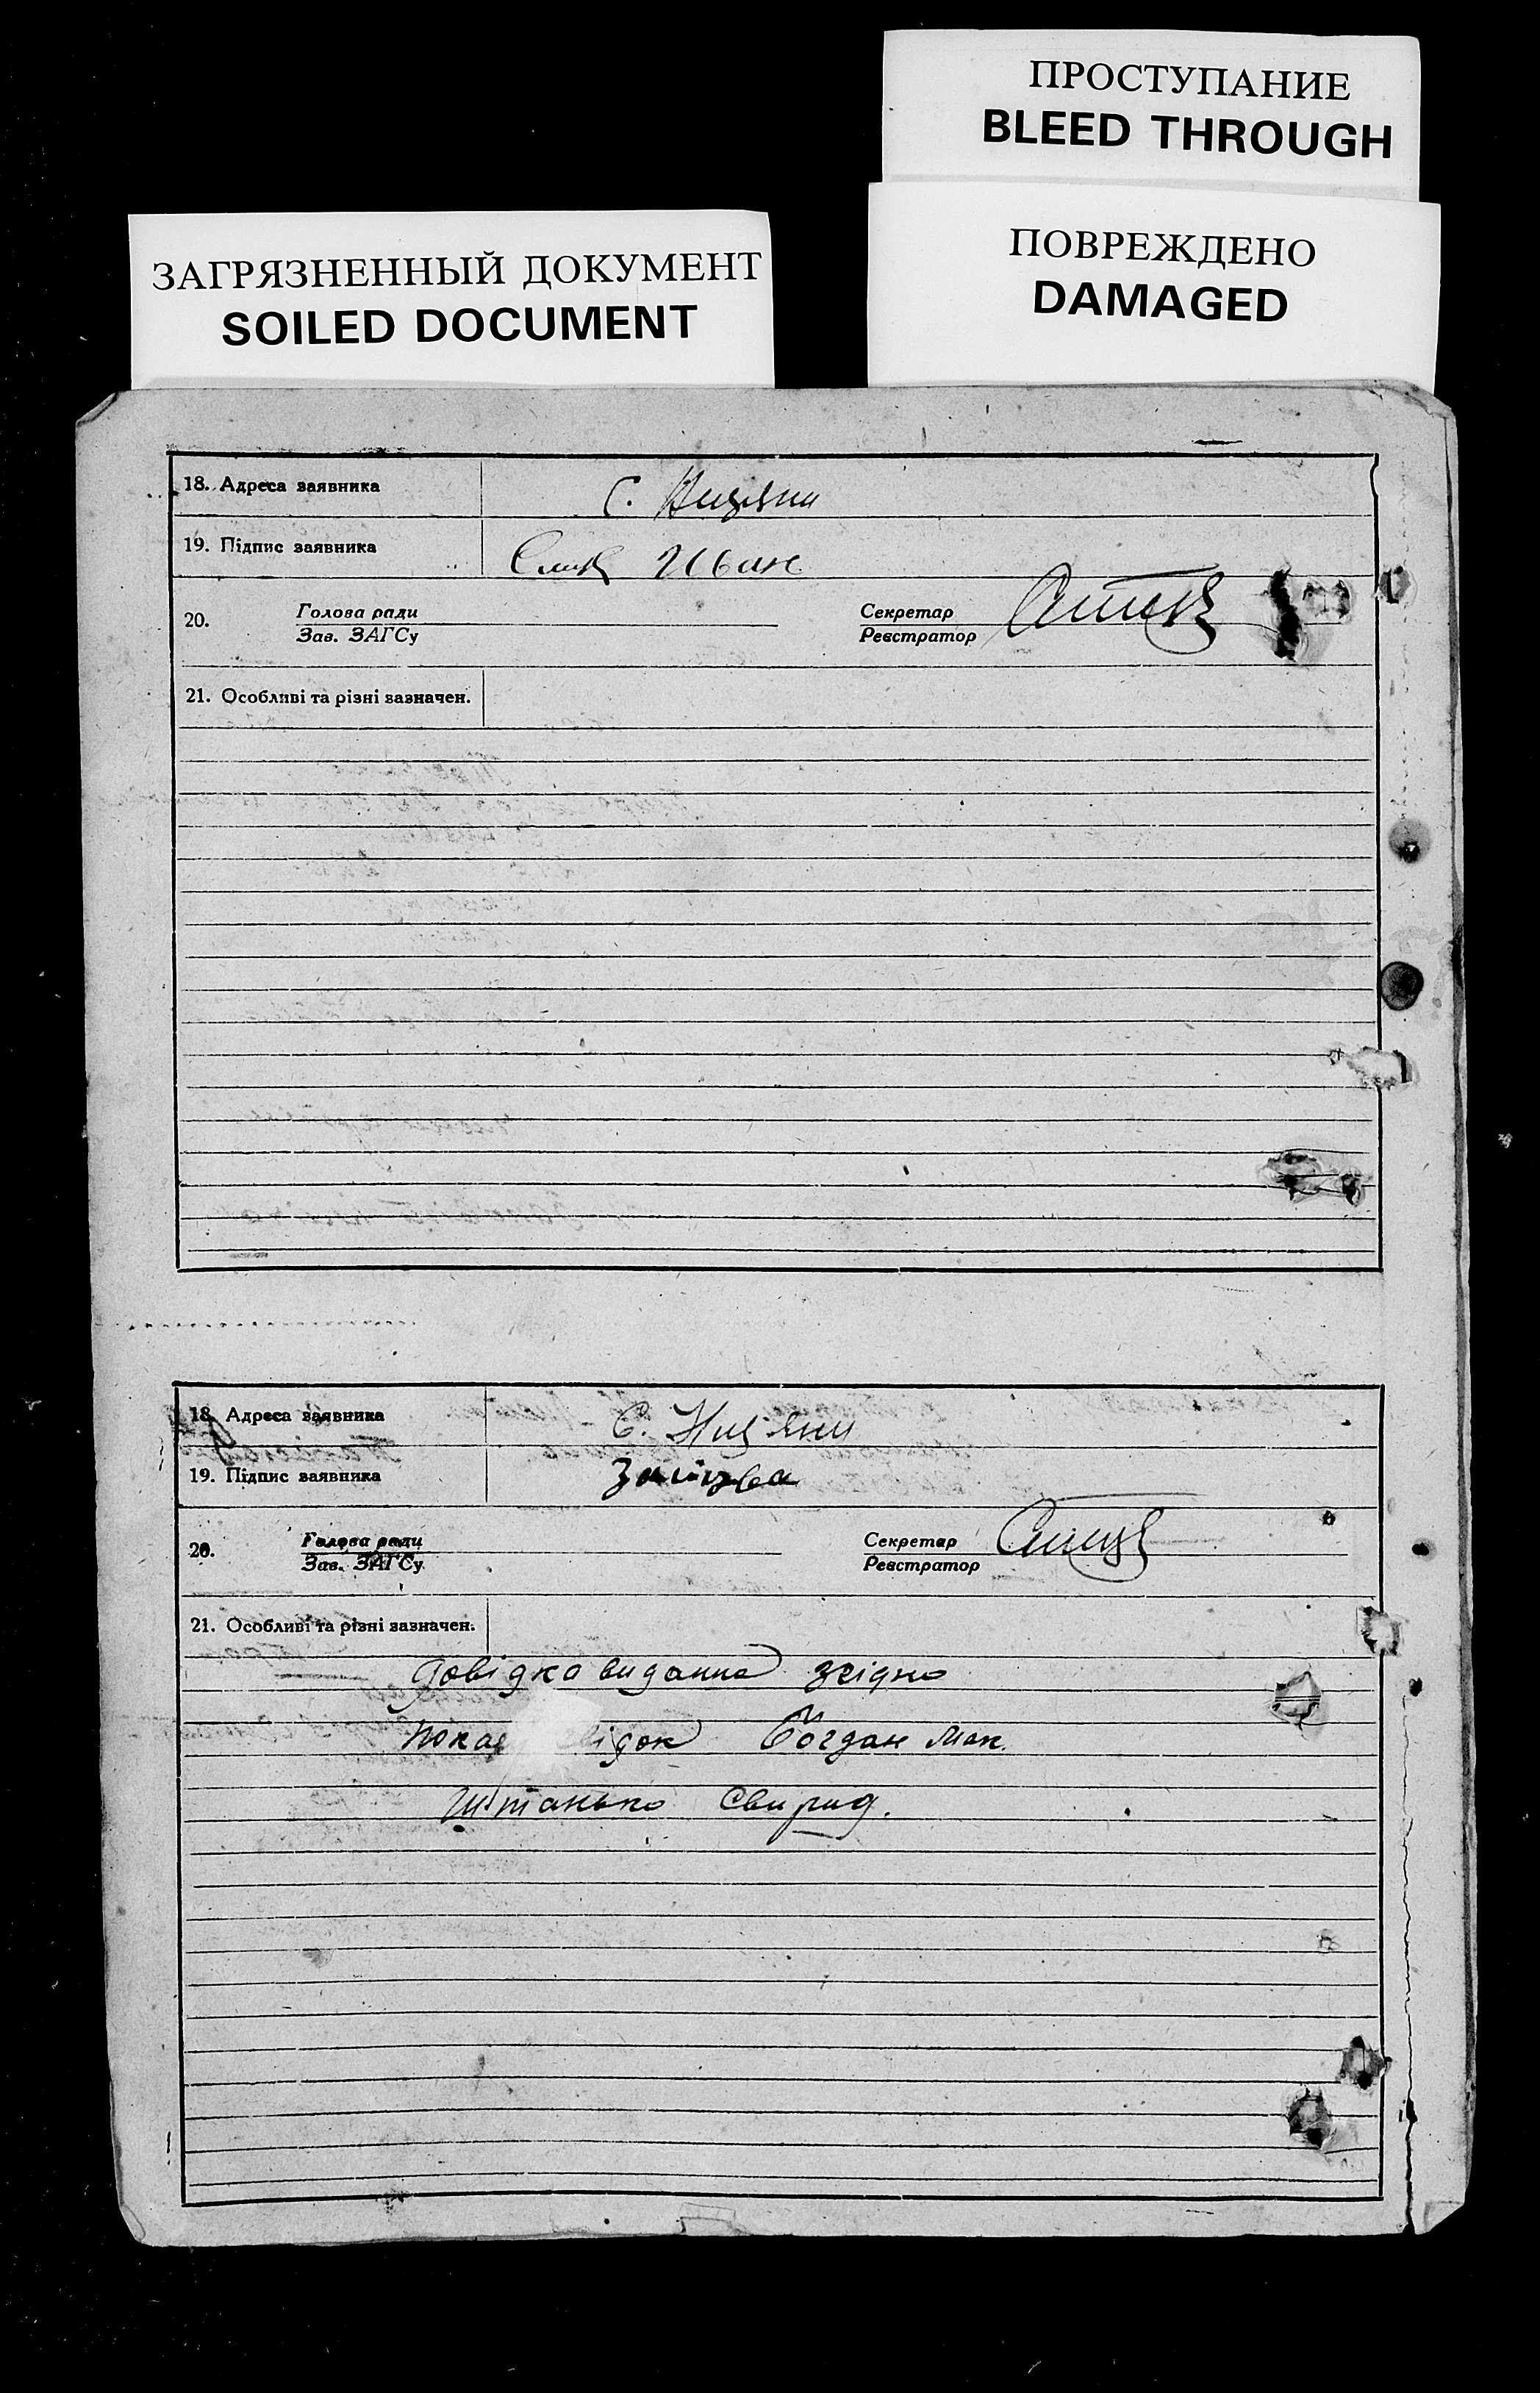 ПРОСТУПАНИЕ
BLEED THROUGH
ПОВРЕЖДЕНО
DAMAGED
ЗАГРЯЗНЕННЫЙ ДОКУМЕНТ
SOILED DOCUMENT
18. Адреса заявника С. Ниця́ни
19. Підпис заявника Иван
20. Голова ради Секретар
Зав. ЗАГСу Реєстратор
21. Особливі та різні зазначен.
18. Адреса заявника С. Ниц'яни
19. Підпис заявника
20. Голова ради Секретар
Зав. ЗАГСу Реєстратор
21. Особливі та різні зазначен.
Довідка виданна згідно
показ відок Богдан Мак.
Штанько Свирид.